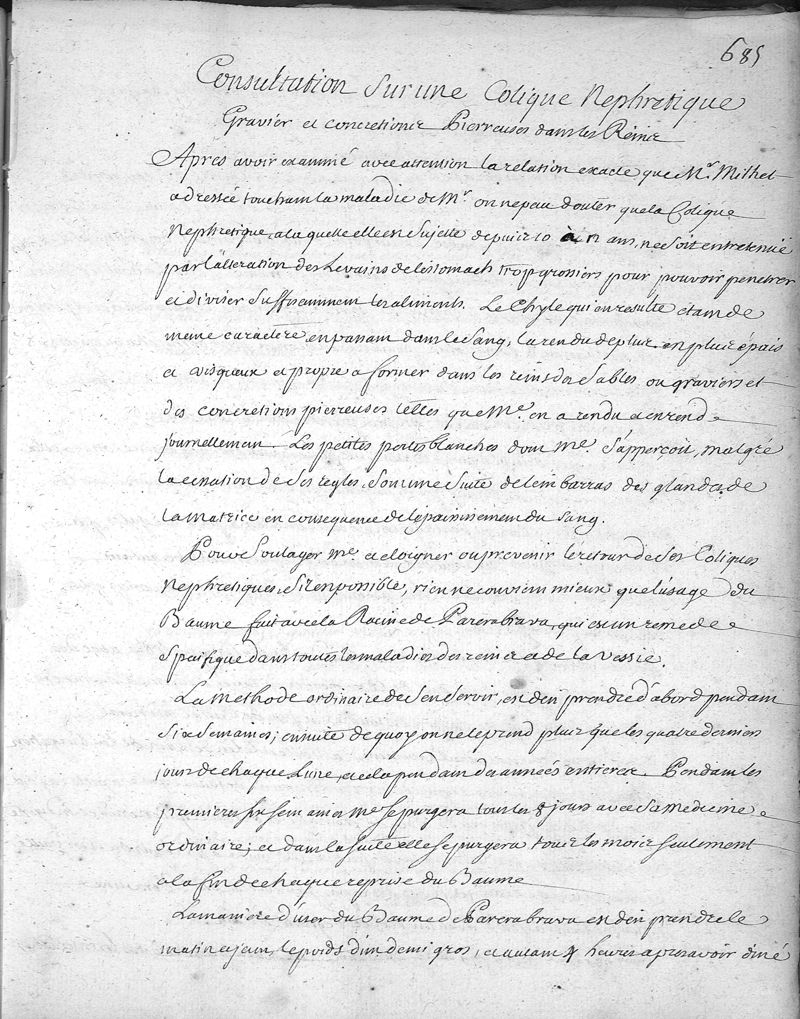 685
Consultation Sur une Colique Nephretique
Gravier et concretions Pierreuses dans les Reins
Apres avoir examiné avec attention la relation exacte que Mr. Mithet
adressée touchant la maladie de Mr on ne peau douter que la Colique
Nephretique, a la quelle elle en Sujette depuis 10 à 12 ans, ne Soit entretenue
par l'alteration des Levains de lestomach trop grossiers pour pouvoir penetrer
et diviser Suffisamment les aliments. Le Chyle qui en resulte etam de
meme caractere en passam dans le Sang, la rendu de plus en plus épais
et visqueux et propre a former dans les reins des Sables ou graviers et
des concretions pierreuses telles que Me. en a rendu et en rend
journellemam. Les petites pertes blanches dom Me. S'apperçoit, malgré
la cessation de Ses regles, Som une Suite de lembarras des glandes de
la matrice en consequence de lépaississement du Sang.
Pour Soulager Me. et eloigner ou prevenir le retour de Ses Coliques
Nephretiques, S'il en possible, rien ne convient mieux que lusage du
Baume fait avec la Racine de Parera brava, qui est un remede
Specifique dans toutes les maladies des reins et de la vessie.
La methode ordinaire de Sen Servir, en den prendre d'abord pendam
Six Semaines; ensuite de quoy on ne le prend plus que les quatre derniers
jours de chaque Lune, et cela pendam des années entieres. Pendam les
premieres Six Semaines Me Se purgera tous les 8 jours avec Sa medecine
ordinaire; et dans la Suite elle Se purgera tous les mois Seulement
a la fin de chaque reprise du Baume
La maniere d'user du Baume de Parera brava en den prendre le
matin a jeun, le poids d'un demi gros, et autam 4 heures apres avoir diné